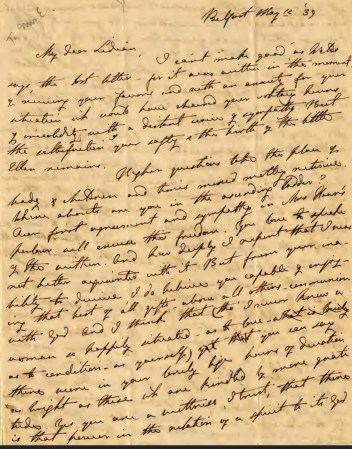 Belfast May 12 '39
My dear Lidian,
I can't make good as
say, the best letter - for it was written in the moment
of receiving your favour and with an anxiety for your
situation wh would have cheered your solitary hours
of invalidity with a distant voice of sympathy But
the satisfaction of your safety & the birth of the little
Ellen remains.
Higher questions take the place of
body & children and
where abouts are you in the ascending ladder?
Our first agreement and sympathy in Mrs
parlour will excuse the freedom. You love to speake
of the written. And how deeply I repent that I was
not better acquainted with it But from your
bility to I do believe you capable of enjoy-
ing that best of all gifts above all others - communion
with God And I think that tho' I never knew a
woman so happily situated - as to love -
as to condition - as yourself, yet that you can say
there were in your lonely life hours of devotion
as bright as these wh are kindled by mere grati-
tude. So you are a witness, I trust, that there
is that power in the relation of a spirit to its God